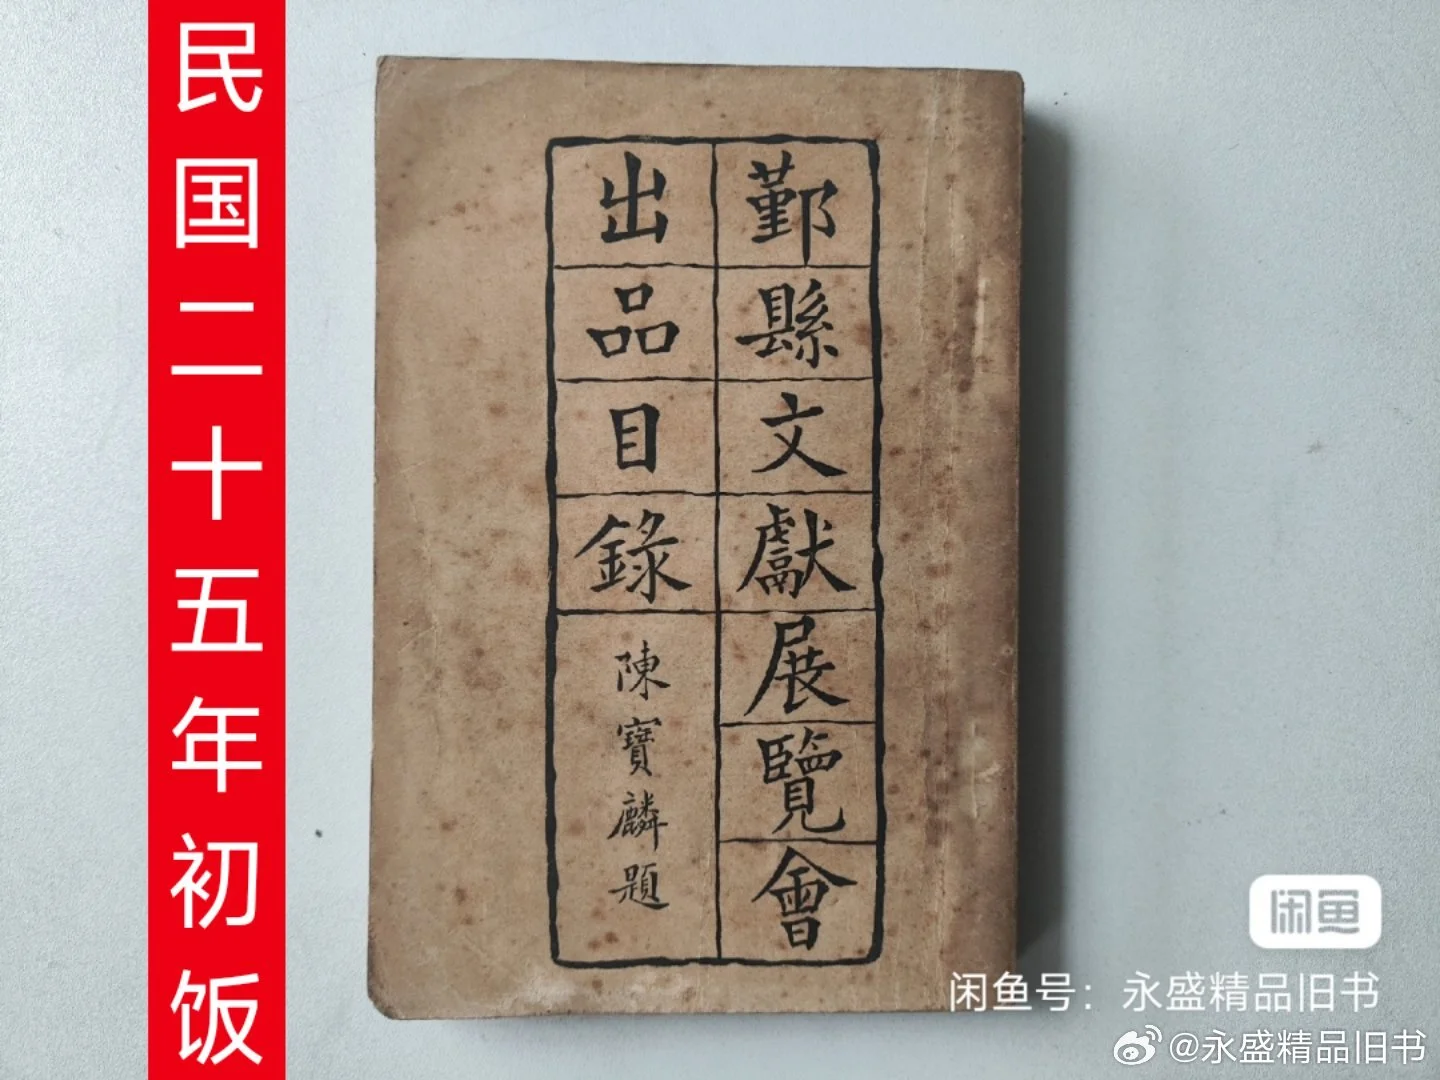 民国二十五年初饭
鄞縣文獻展覽會
出品目錄
陳寶麟題
闲鱼
闲鱼号：永盛精品旧书
@永盛精品旧书